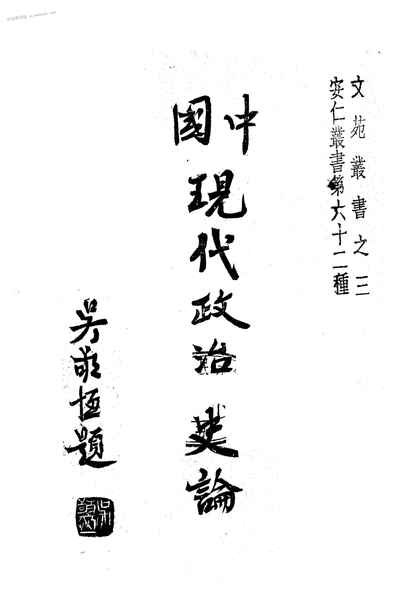 文苑叢書之三
安仁叢書第六十二種
中國現代政治史論
吳敬恆題